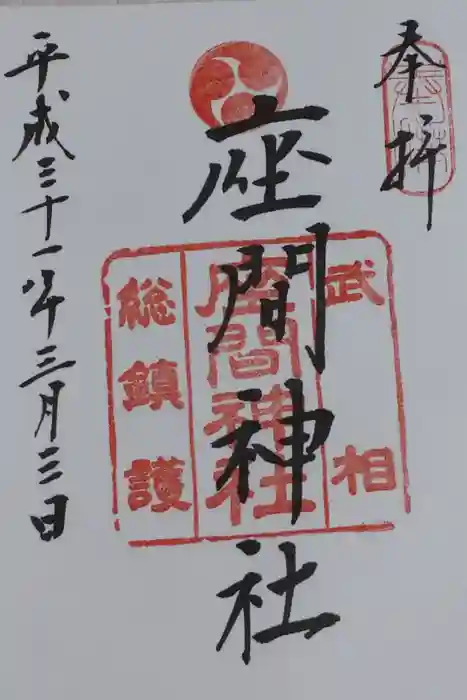 奉拝
武相
座間神社
総鎮護
座間神社
平成三十一年三月三日